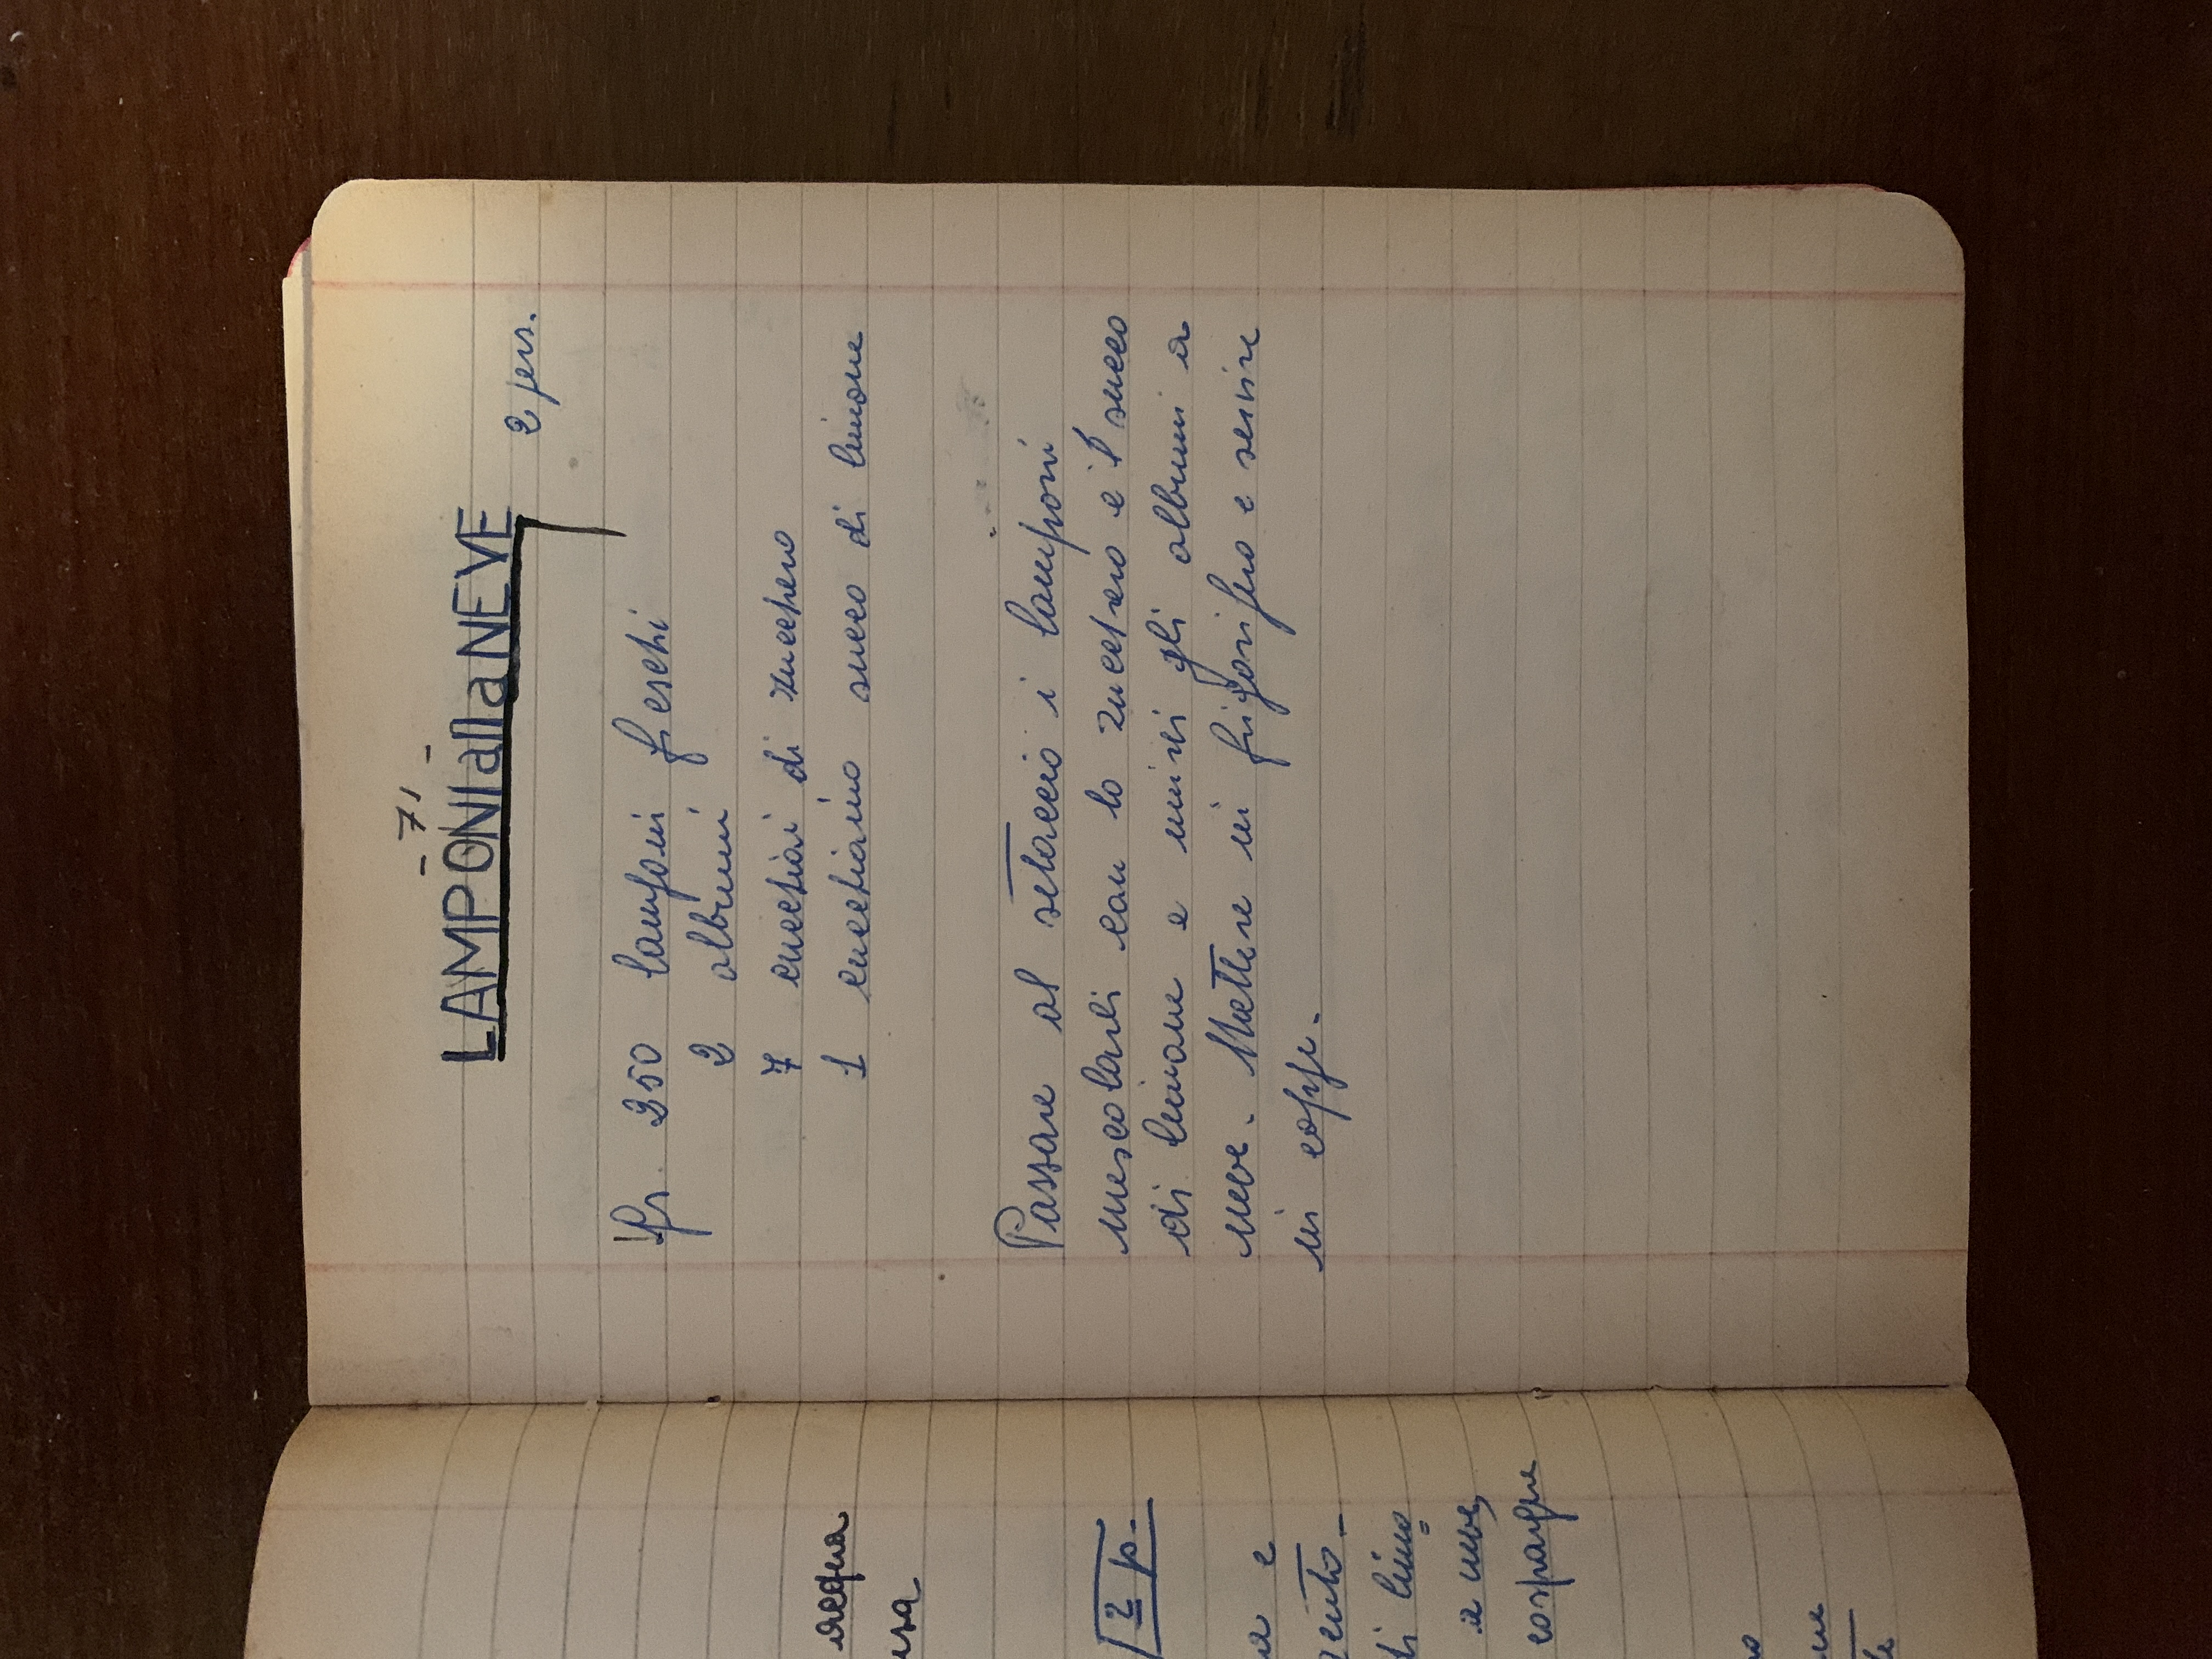 acqua
2 p.
a e
di limo
a neve,
cospargere
- 71 -
LAMPONI alla NEVE
2 pers.
Gr. 250 lamponi freschi
2 albumi
7 cucchiai di zucchero
1 cucchiaino succo di limone
Passare al setaccio i lamponi
mescolarli con lo zucchero e il succo
di limone e unirci gli albumi a
neve. Mettere in frigorifero e servire
in coppe.